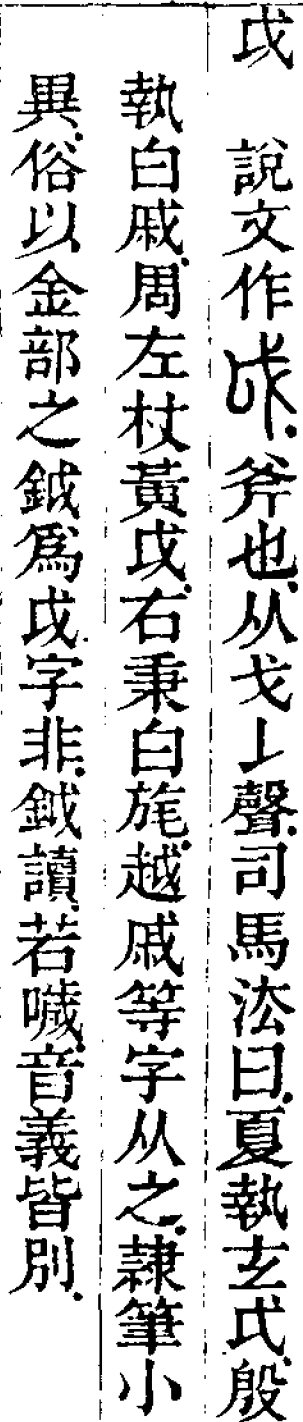 戉 說文作戉斧也从戈𠄌聲司馬法曰夏執玄戉殷
執白戚周左杖黃戉右秉白旄越戚等字从之隷筆小
異俗以金部之鉞爲戉字非鉞讀若噦音義皆別